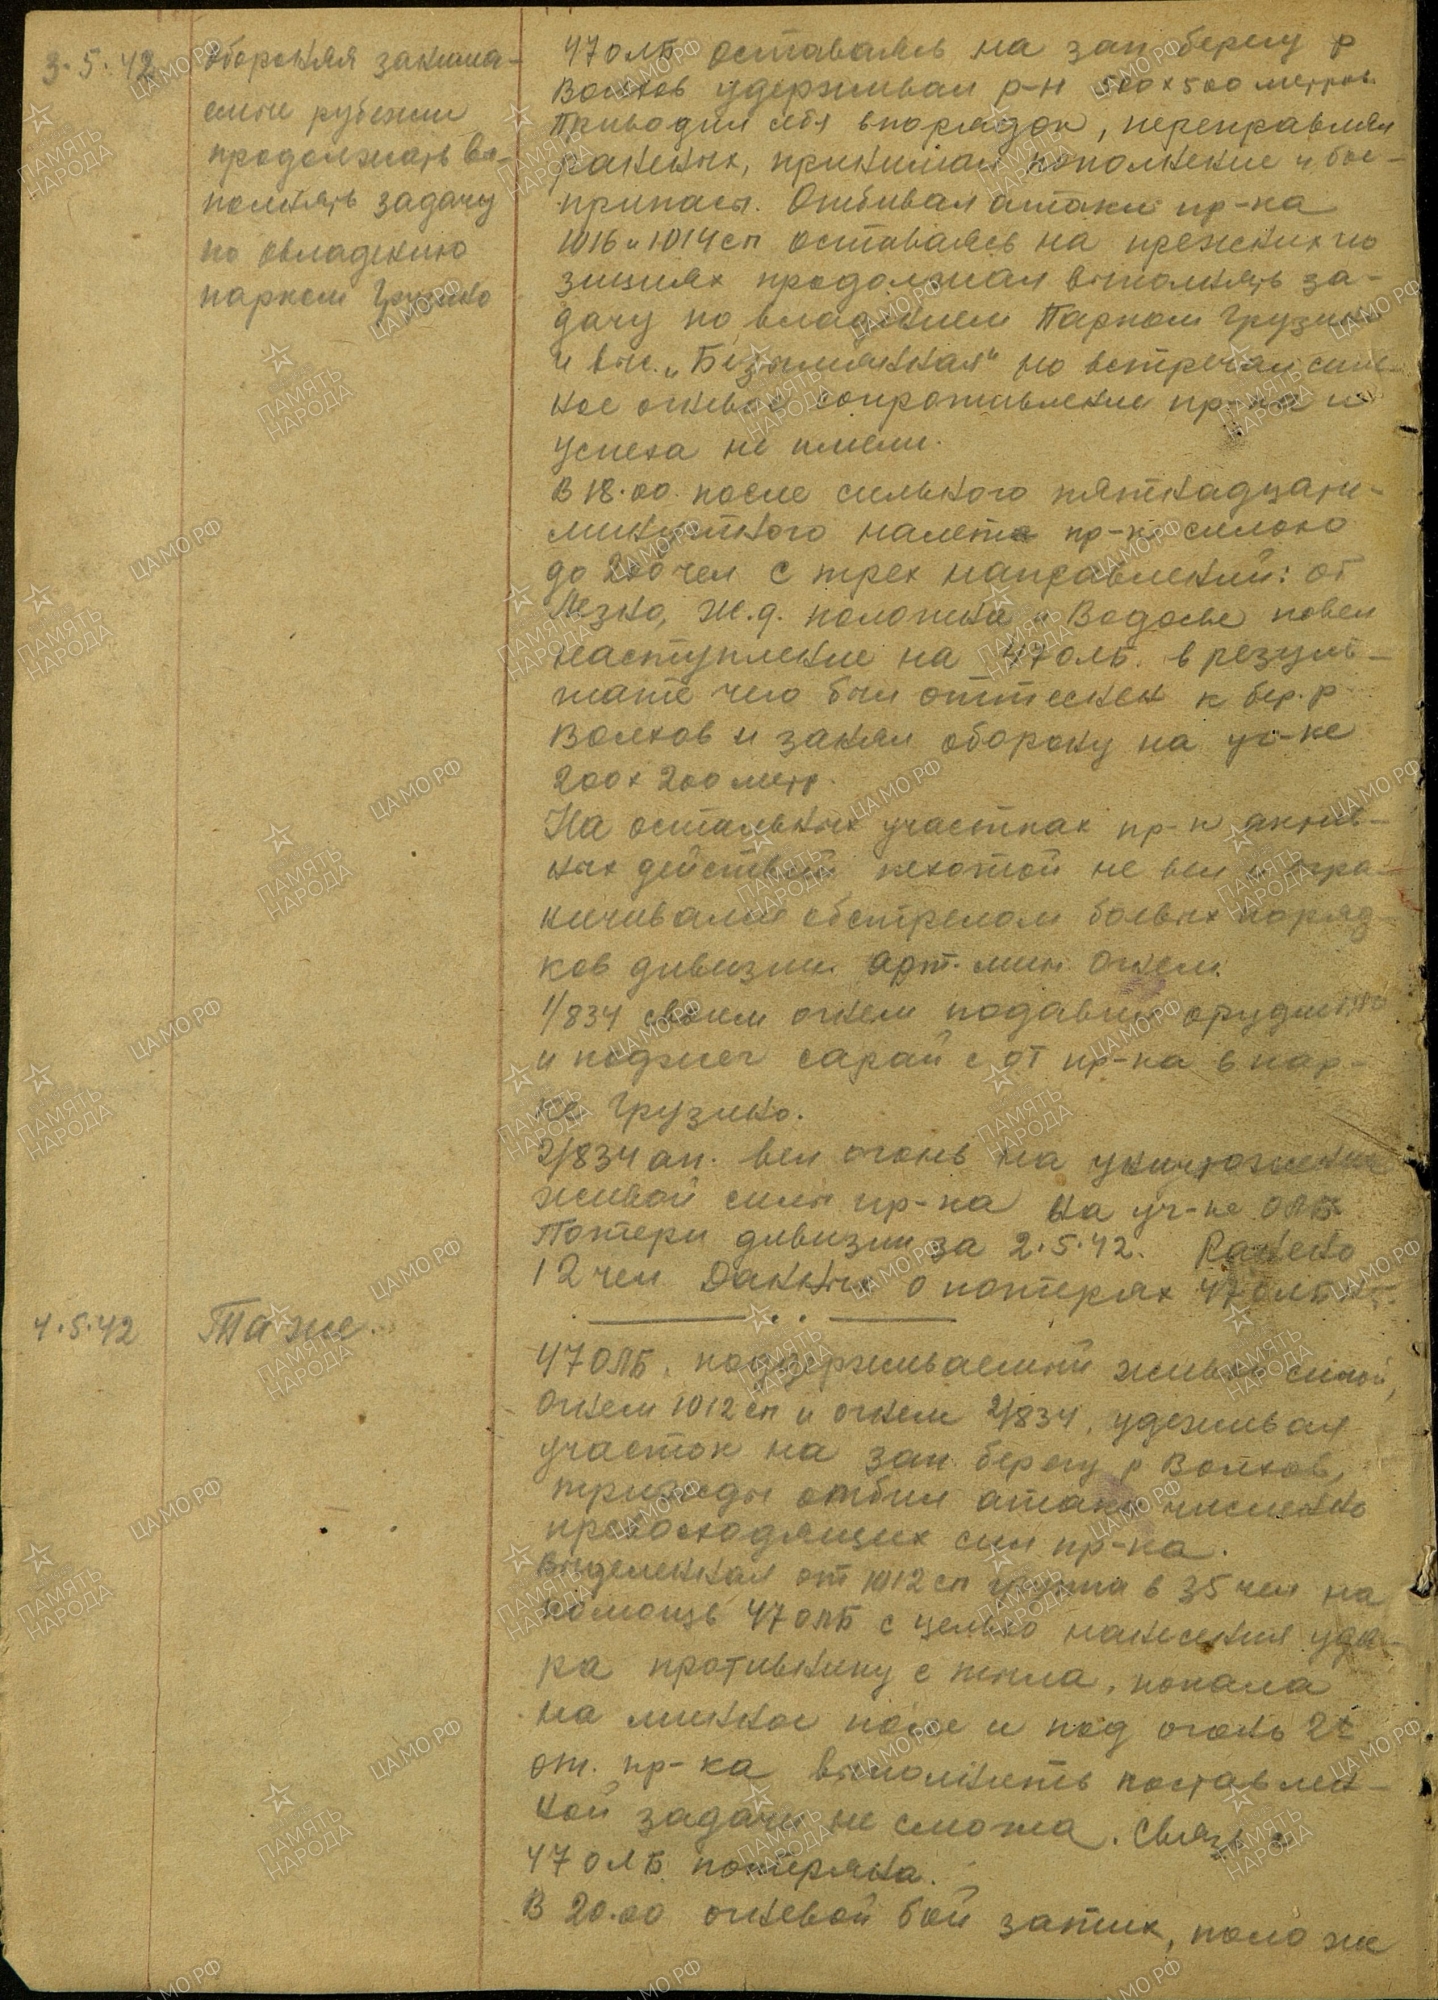 3.5.42
Обороняя занима-
емые рубежи
продолжать вы-
полнять задачу
по овладению
парком Грузино
47 ОЛБ оставаясь на зап берегу р
Волхов удерживал р-н 500х500 метров
Приводил себя впорядок, переправлял
раненых, принимал пополнение и бое-
припасы. Отбивал атаки пр-ка
1016 и 1014 сп оставаясь на прежних по
зициях продолжал выполнять за-
дачу по владением Парком Грузино
и выс. „Безымянная" но встречая силь-
ное огневое сопротивление пр-ка и
успеха не имели.
В 18.00. после сильного пятнадцати-
минутного налета пр-к силою
до 200 чел с трех направлений: от
Лезно, ж.д. полотна и Водосье повел
наступление на 47 ОЛБ. в резуль-
тате чего был оттеснен к бер. р
Волхов и занял оборону на уч-ке
200х200 метр.
На остальных участках пр-к актив-
ных действий пехотой не вел и огра-
ничивался обстрелом боевых поряд
ков дивизии арт. мин. Огнем.
1/834 своим огнем подавил орудие
и поджег сарай с от пр-ка в пар-
ке Грузино.
2/834 ап. вел огонь на уничтожение
живой силы пр-ка на уч-ке ОЛБ
Потери дивизии за 2.5.42. Ранено
12 чел Данных о потерях 47 ОЛБ
4.5.42
Та же.
47 ОЛБ. поддерживаемый живой силой,
Огнем 1012 сп и огнем 2/834, удеживая
участок на зап берегу р Волхов,
трижды отбил атаки численно
превосходящих сил пр-ка.
Выделенная от 1012 сп группа в 35 чел на
помощь 47 ОЛБ с целью нанесения уда-
ра противнику с тыла, попала
на минное поле и под огонь 2х
от. пр-ка выполнить поставлен-
ной задачи не смогла. Связь с
47 ОЛБ потеряна.
В 20.00 огневой бой затих, положе